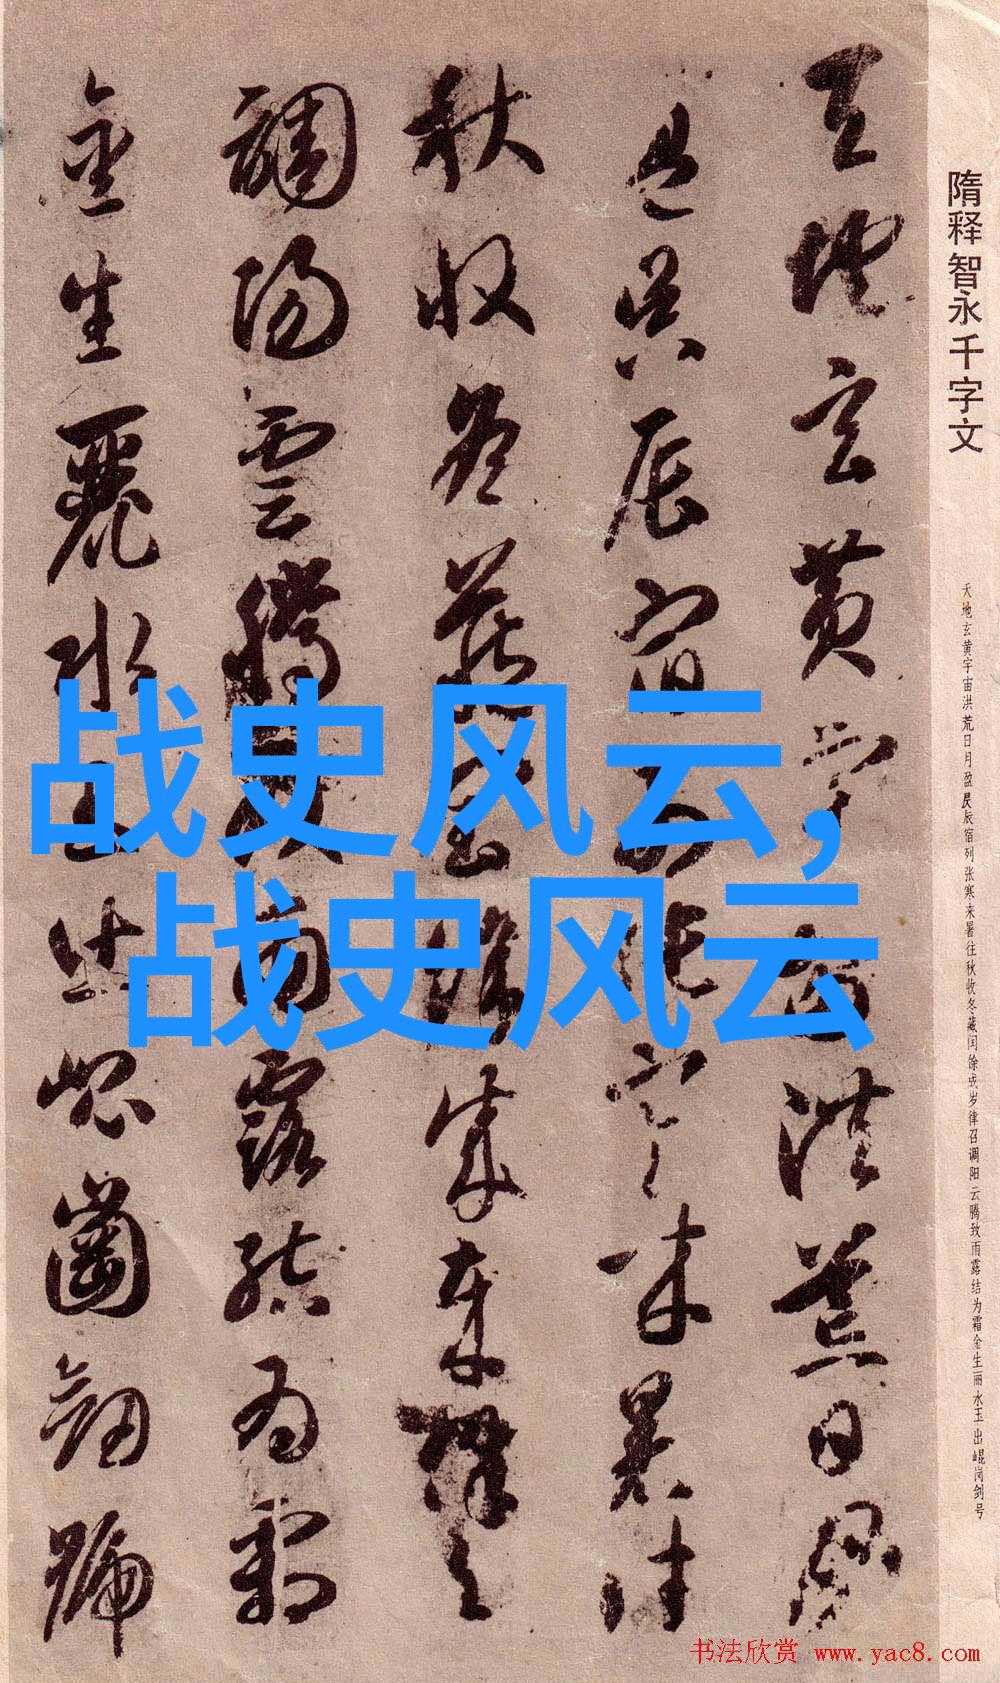 隋释智永千字文
天地玄黄宇宙洪荒日月盈昃辰宿列张寒来暑往秋收冬藏闰馀成岁律召调阳云腾致雨露结为霜金生丽水玉出崐岗剑号
天地玄黄宇宙洪荒日月
盈昃辰宿列張寒来暑往
秋收冬藏閏餘成歲律召
調陽雲騰致雨露結為霜
金生麗水玉出崐崗劒號
战史风云,
战史风云
书法欣赏 www.yac8.com